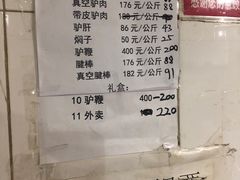 真空驴肉 176 元/公斤 88
带皮驴肉 180 元/公斤 90
驴肝 86 元/公斤 43
焖子 50 元/公斤 25
驴鞭 400 元/公斤 200
腱棒 176 元/公斤 88
真空腱棒 182 元/公斤 91
礼盒:
10 驴鞭 400 200
11 外卖 220